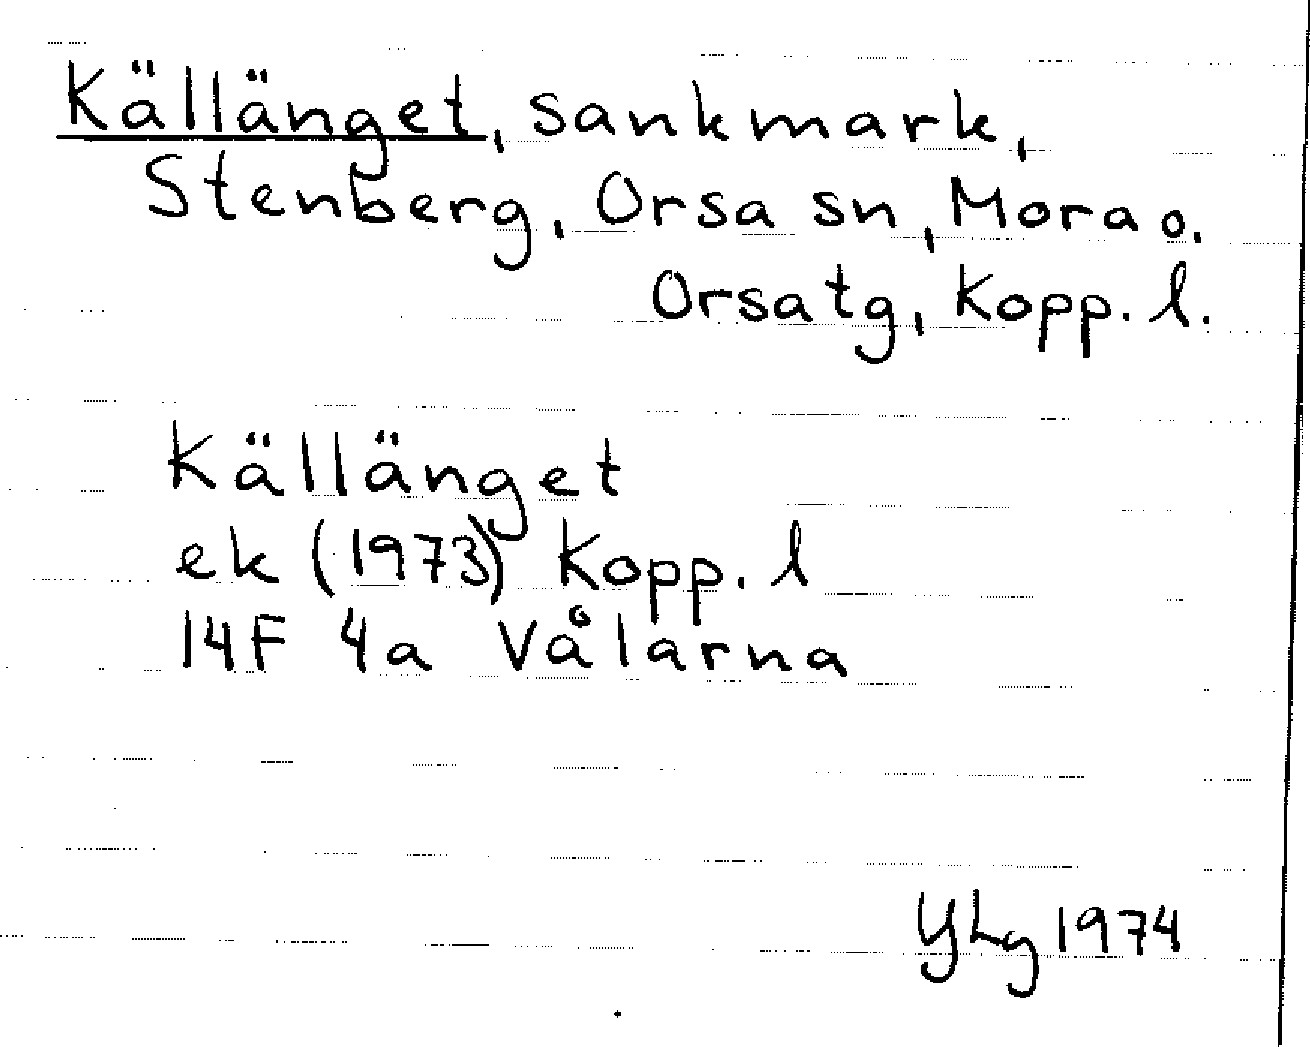 Källänget, sankmark,
Stenberg, Orsa sn, Mora o.
Orsatg, Kopp. l.
Källänget
ek (1973) Kopp. l
14F 4a Vålarna
YLg 1974